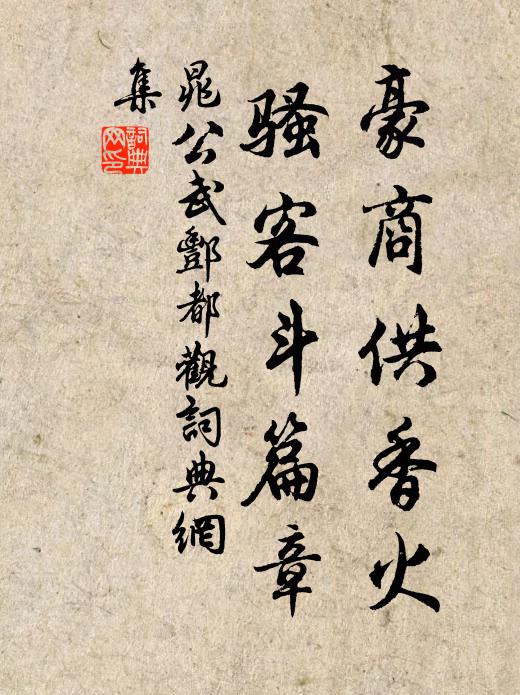 豪商供香火
骚客斗篇章
晁公武酆都觀詞典網
集
詞典網印